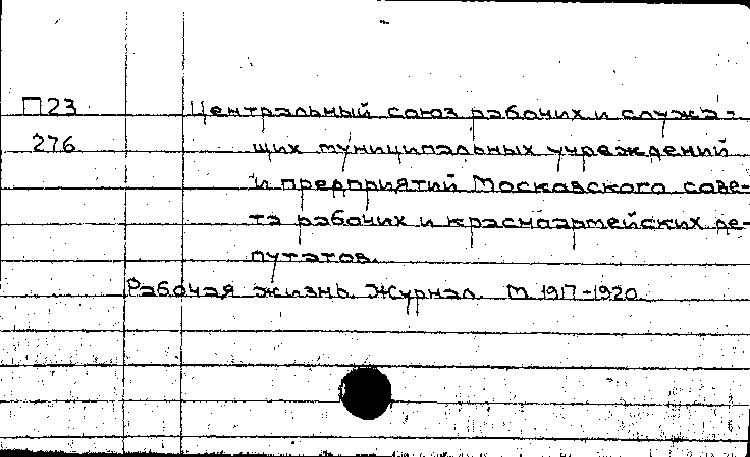 П23 Центральный союз рабочих и служа-
276 щих муниципальных учреждений
и предприятий Московского сове-
та рабочих и красноармейских де-
путатов.
Рабочая жизнь. Журнал. М. 1917-1920.